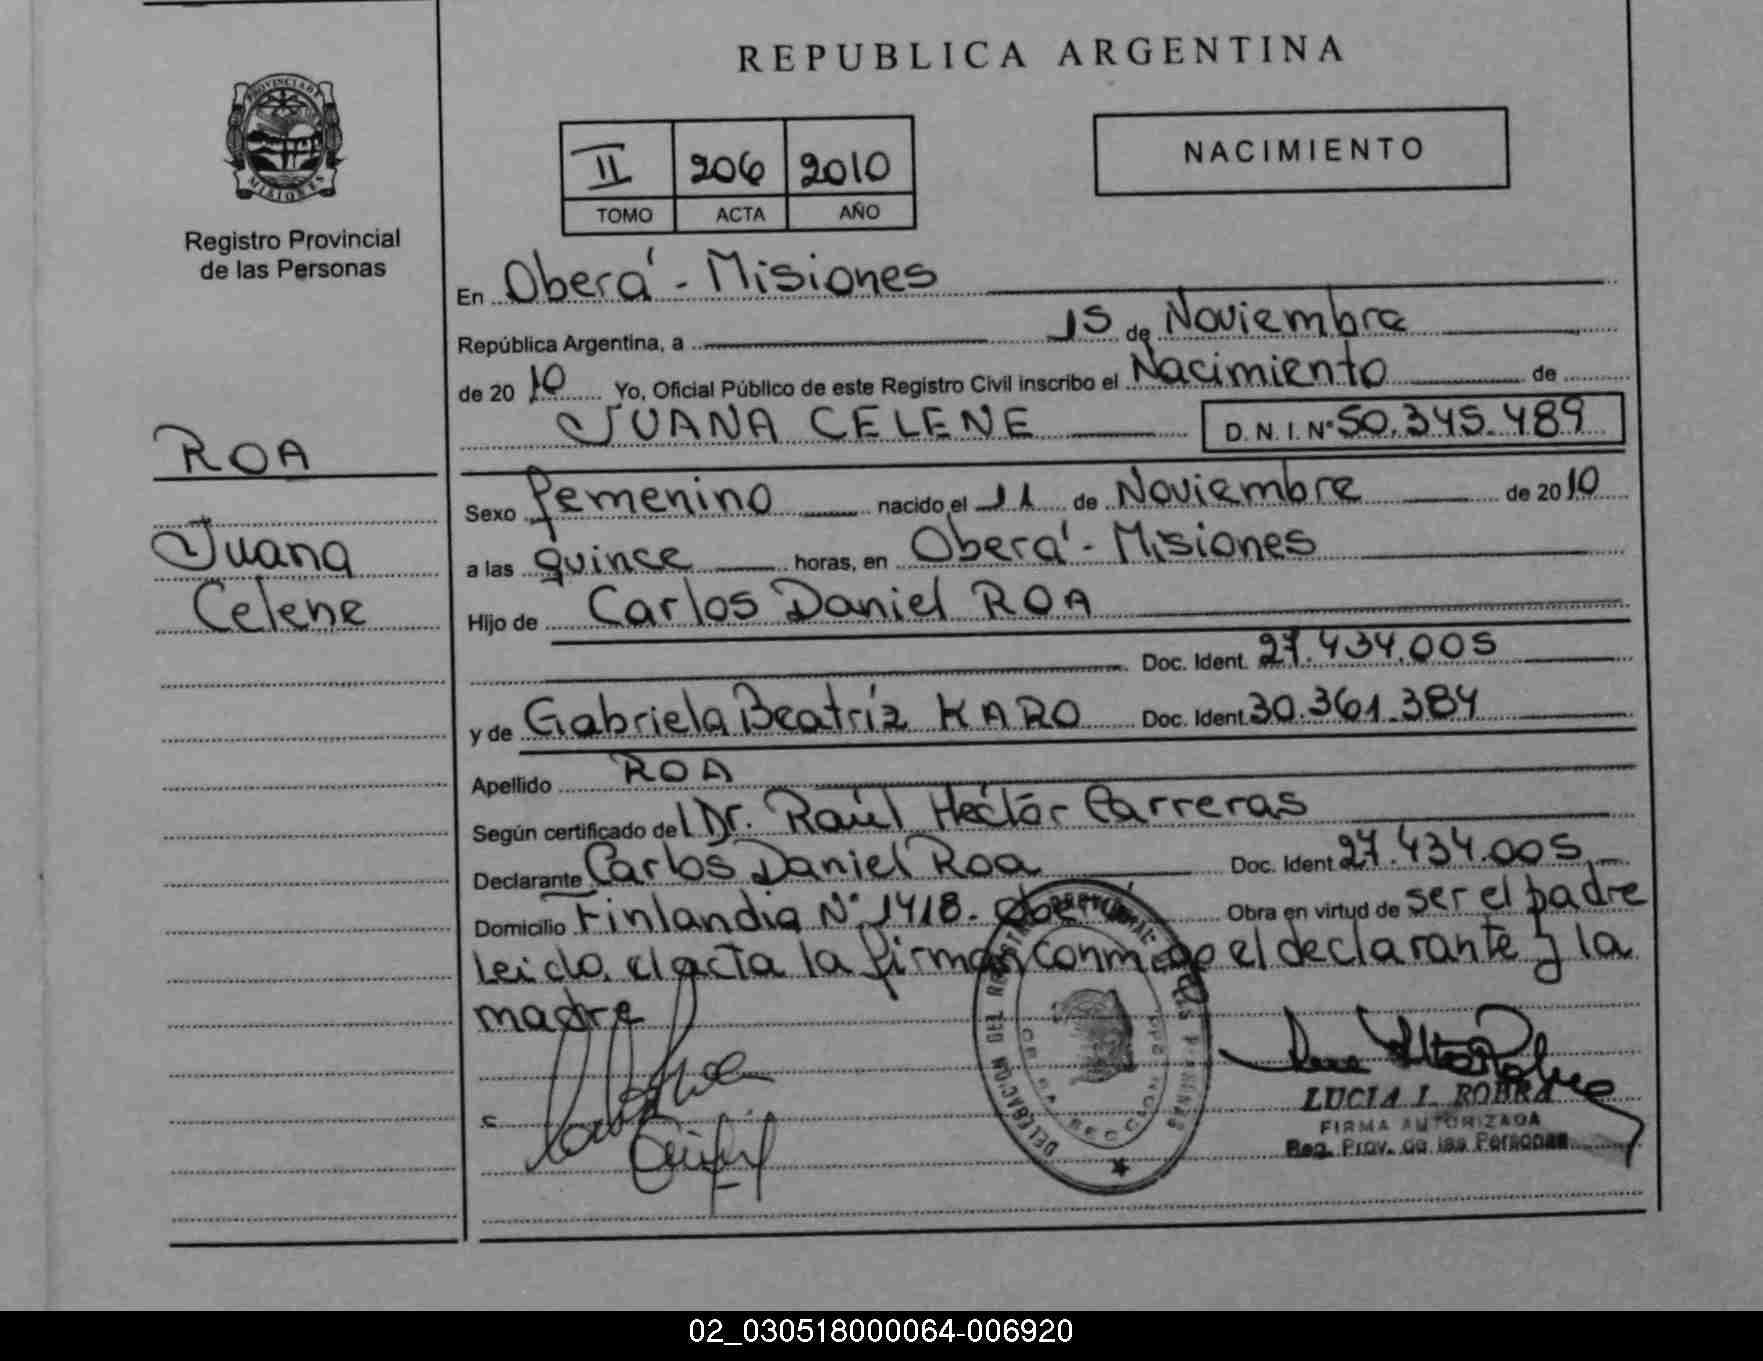 REPUBLICA ARGENTINA
PROVINCIA DE
MISIONES
Registro Provincial
de las Personas
II 206 2010
TOMO ACTA AÑO
NACIMIENTO
En Oberá - Misiones
República Argentina, a 15 de Noviembre
de 2010 Yo, Oficial Público de este Registro Civil inscribo el Nacimiento de
JUANA CELENE D.N.I. Nº 50.345.489
ROA
Juana
Celene
Sexo femenino nacido el 11 de Noviembre de 2010
a las quince horas, en Oberá - Misiones
Hijo de Carlos Daniel ROA
Doc. Ident. 27.434.005
y de Gabriela Beatríz KARO Doc. Ident. 30.361.384
Apellido ROA
Según certificado del Dr. Raúl Héctor Carreras
Declarante Carlos Daniel Roa Doc. Ident 27.434.005
Domicilio Finlandia Nº 1418. Obe Obra en virtud de ser el padre
leido el acta la firman conmigo el declarante y la
madre
DELEGACION DEL REGISTRO PROVINCIAL DE LAS PERSONAS
OBERA SECCION
LUCIA I. ROBRA
FIRMA AUTORIZADA
Reg. Prov. de las Personas
02_030518000064-006920